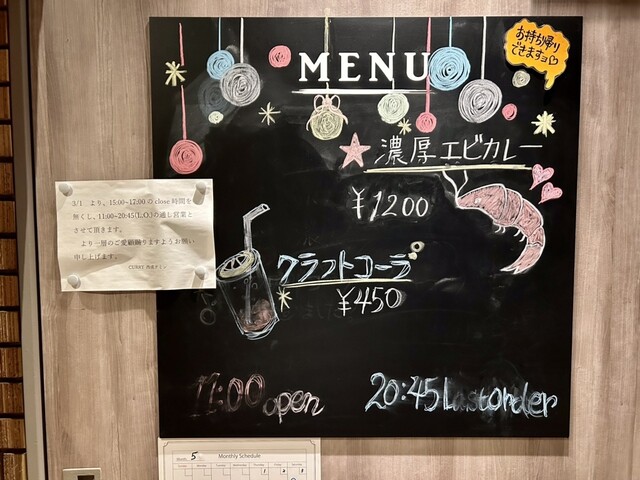 お持ち帰り
できますョ♡
MENU
濃厚エビカレー
¥1200
3/1　より、15:00~17:00 の close 時間を
無くし、11:00~20:45(L.O.)の通し営業と
させて頂きます。
より一層のご愛顧賜りますようお願い
申し上げます。
クラフトコーラ
¥450
11:00 open
20:45 Lastorder
5
Monthly Schedule